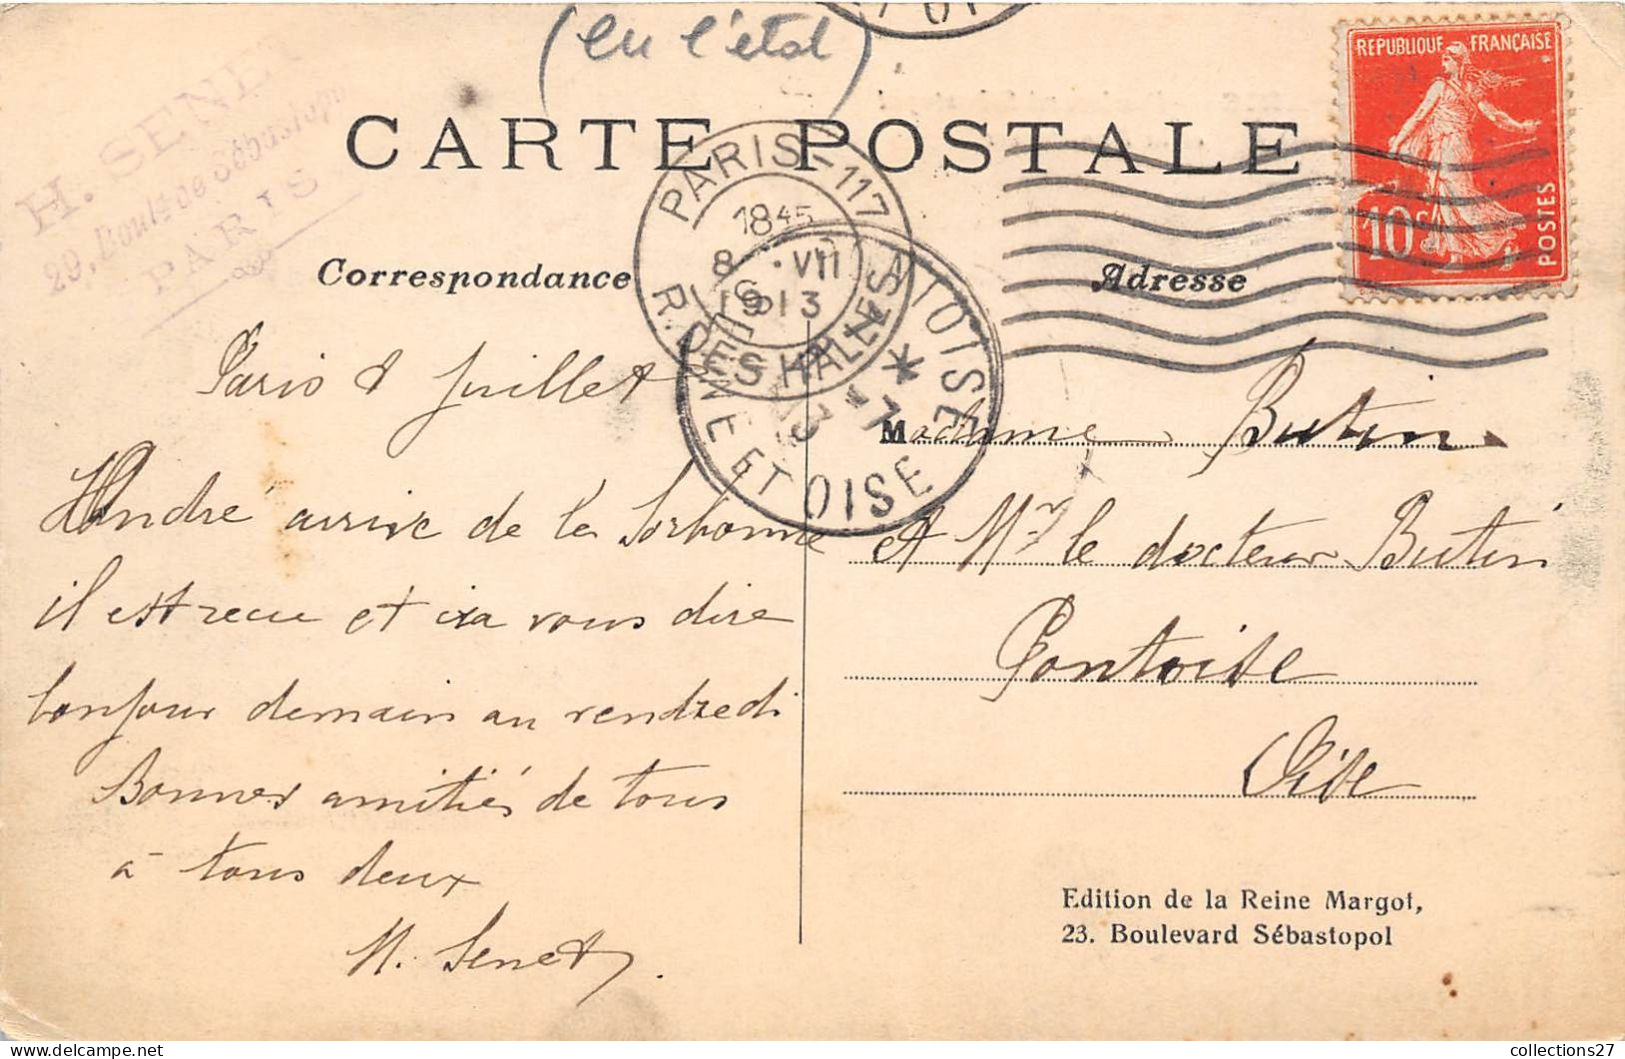 (en l'état)
H. SENET
29, Boulv de Sébastopol
PARIS
CARTE POSTALE
REPUBLIQUE FRANÇAISE
10c
POSTES
PARIS-117
1845
8 VII
1913
R. DES HALLES
PONTOISE
SEINE ET OISE
Correspondance
Adresse
Paris 8 Juillet
André arrive de la Sorbonne
il est recu et ira vous dire
bonjour demain au
Bonnes amitiés de tous
à tous deux
H. Senet
Madame Butin
et Mr le docteur Butin
Pontoise
Oise
Edition de la Reine Margot,
23. Boulevard Sébastopol
collections27